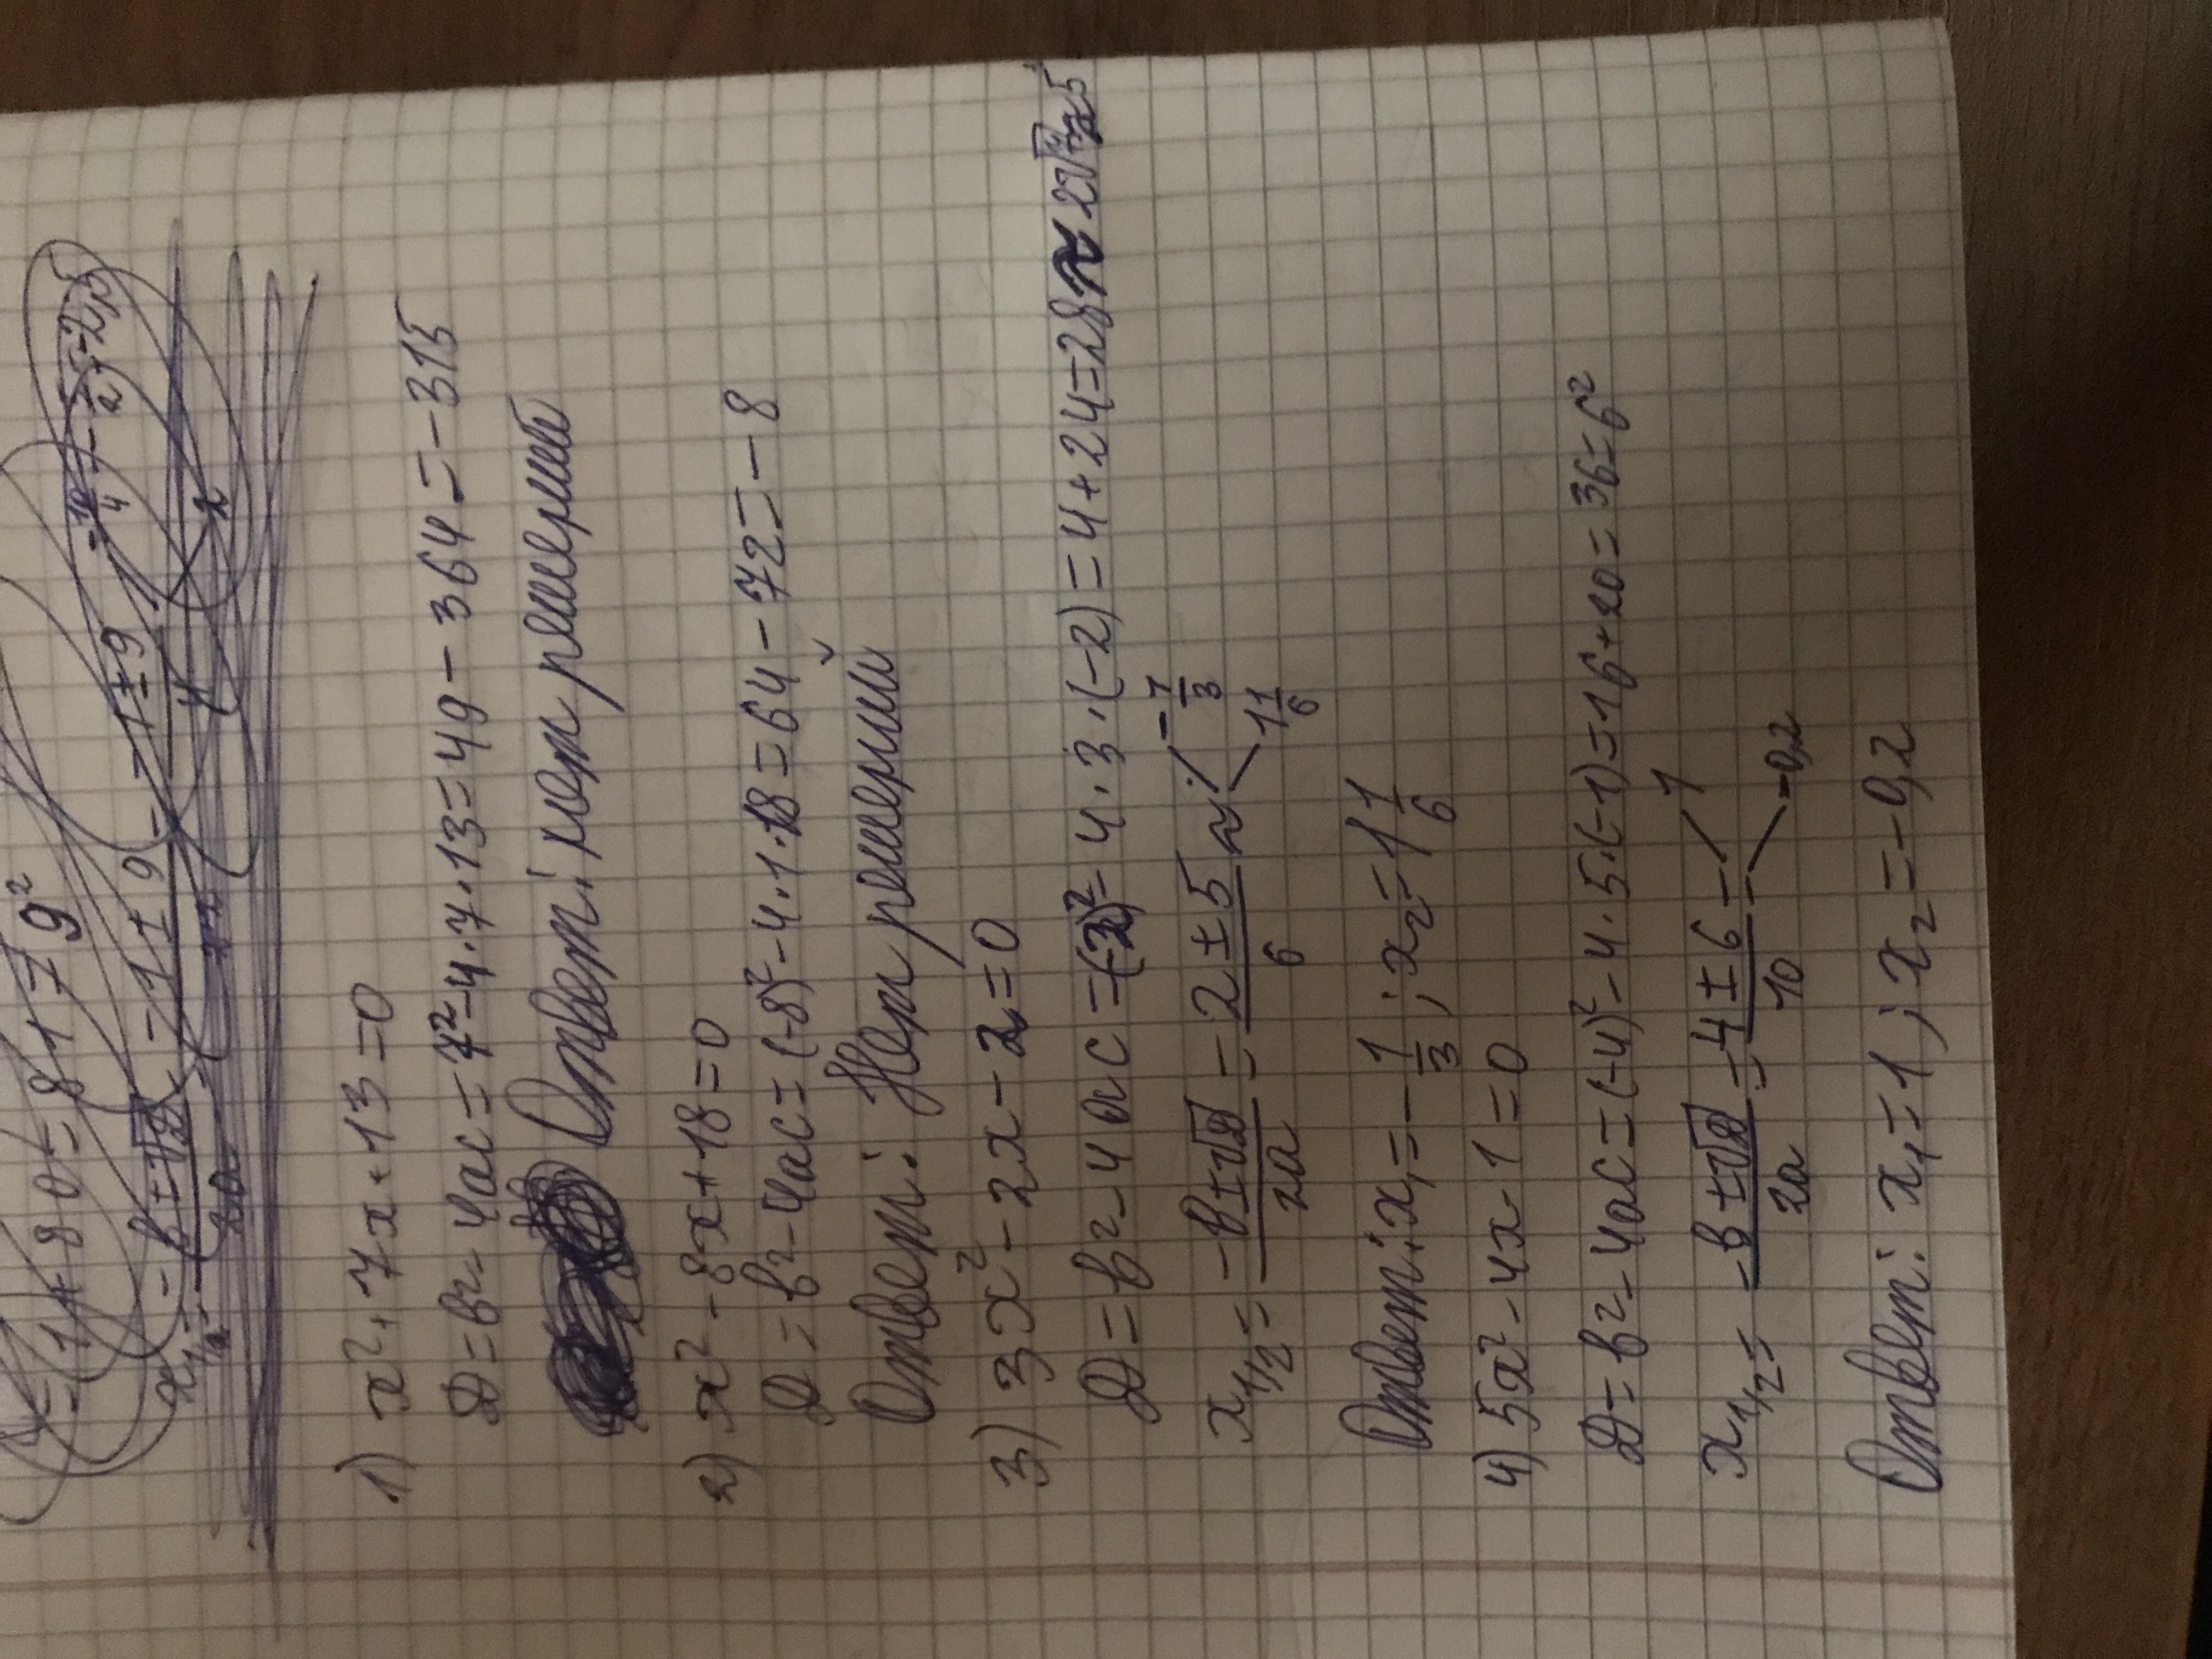 = 1 + 80 = 81 = 9²
x₁/₂ = -b ± √D / 2a = -1 ± 9 / = -1 ± 9 / 4 = -10/4 = -5/2 = -2,5
2
1) x² + 7x + 13 = 0
D = b² - 4ac = 7² - 4 · 7 · 13 = 49 - 364 = -315
Ответ: нет решений
2) x² - 8x + 18 = 0
D = b² - 4ac = (-8)² - 4 · 1 · 18 = 64 - 72 = -8
Ответ: Нет решений
3) 3x² - 2x - 2 = 0
D = b² - 4ac = (-2)² - 4 · 3 · (-2) = 4 + 24 = 28 ≈ 5
x₁/₂ = -b ± √D / 2a = 2 ± 5 / 6 ≈ -1/3
1 1/6
Ответ: x₁ = -1/3; x₂ = 1 1/6
4) 5x² - 4x - 1 = 0
D = b² - 4ac = (-4)² - 4 · 5 · (-1) = 16 + 20 = 36 = 6²
x₁/₂ = -b ± √D / 2a = 4 ± 6 / 10 = 1
-0,2
Ответ: x₁ = 1; x₂ = -0,2